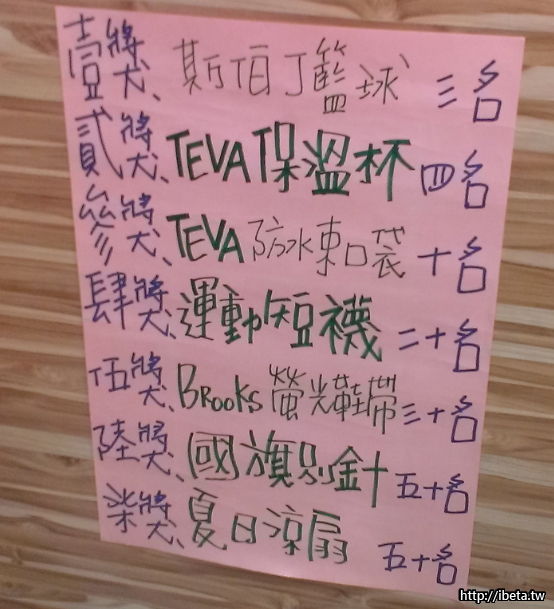 壹獎、斯伯丁籃球 三名
貳獎、TEVA保溫杯 四名
參獎、TEVA防水束口袋 十名
肆獎、運動短襪 二十名
伍獎、BROOKS螢光鞋帶 三十名
陸獎、國旗別針 五十名
柒獎、夏日涼扇 五十名
http://ibeta.tw